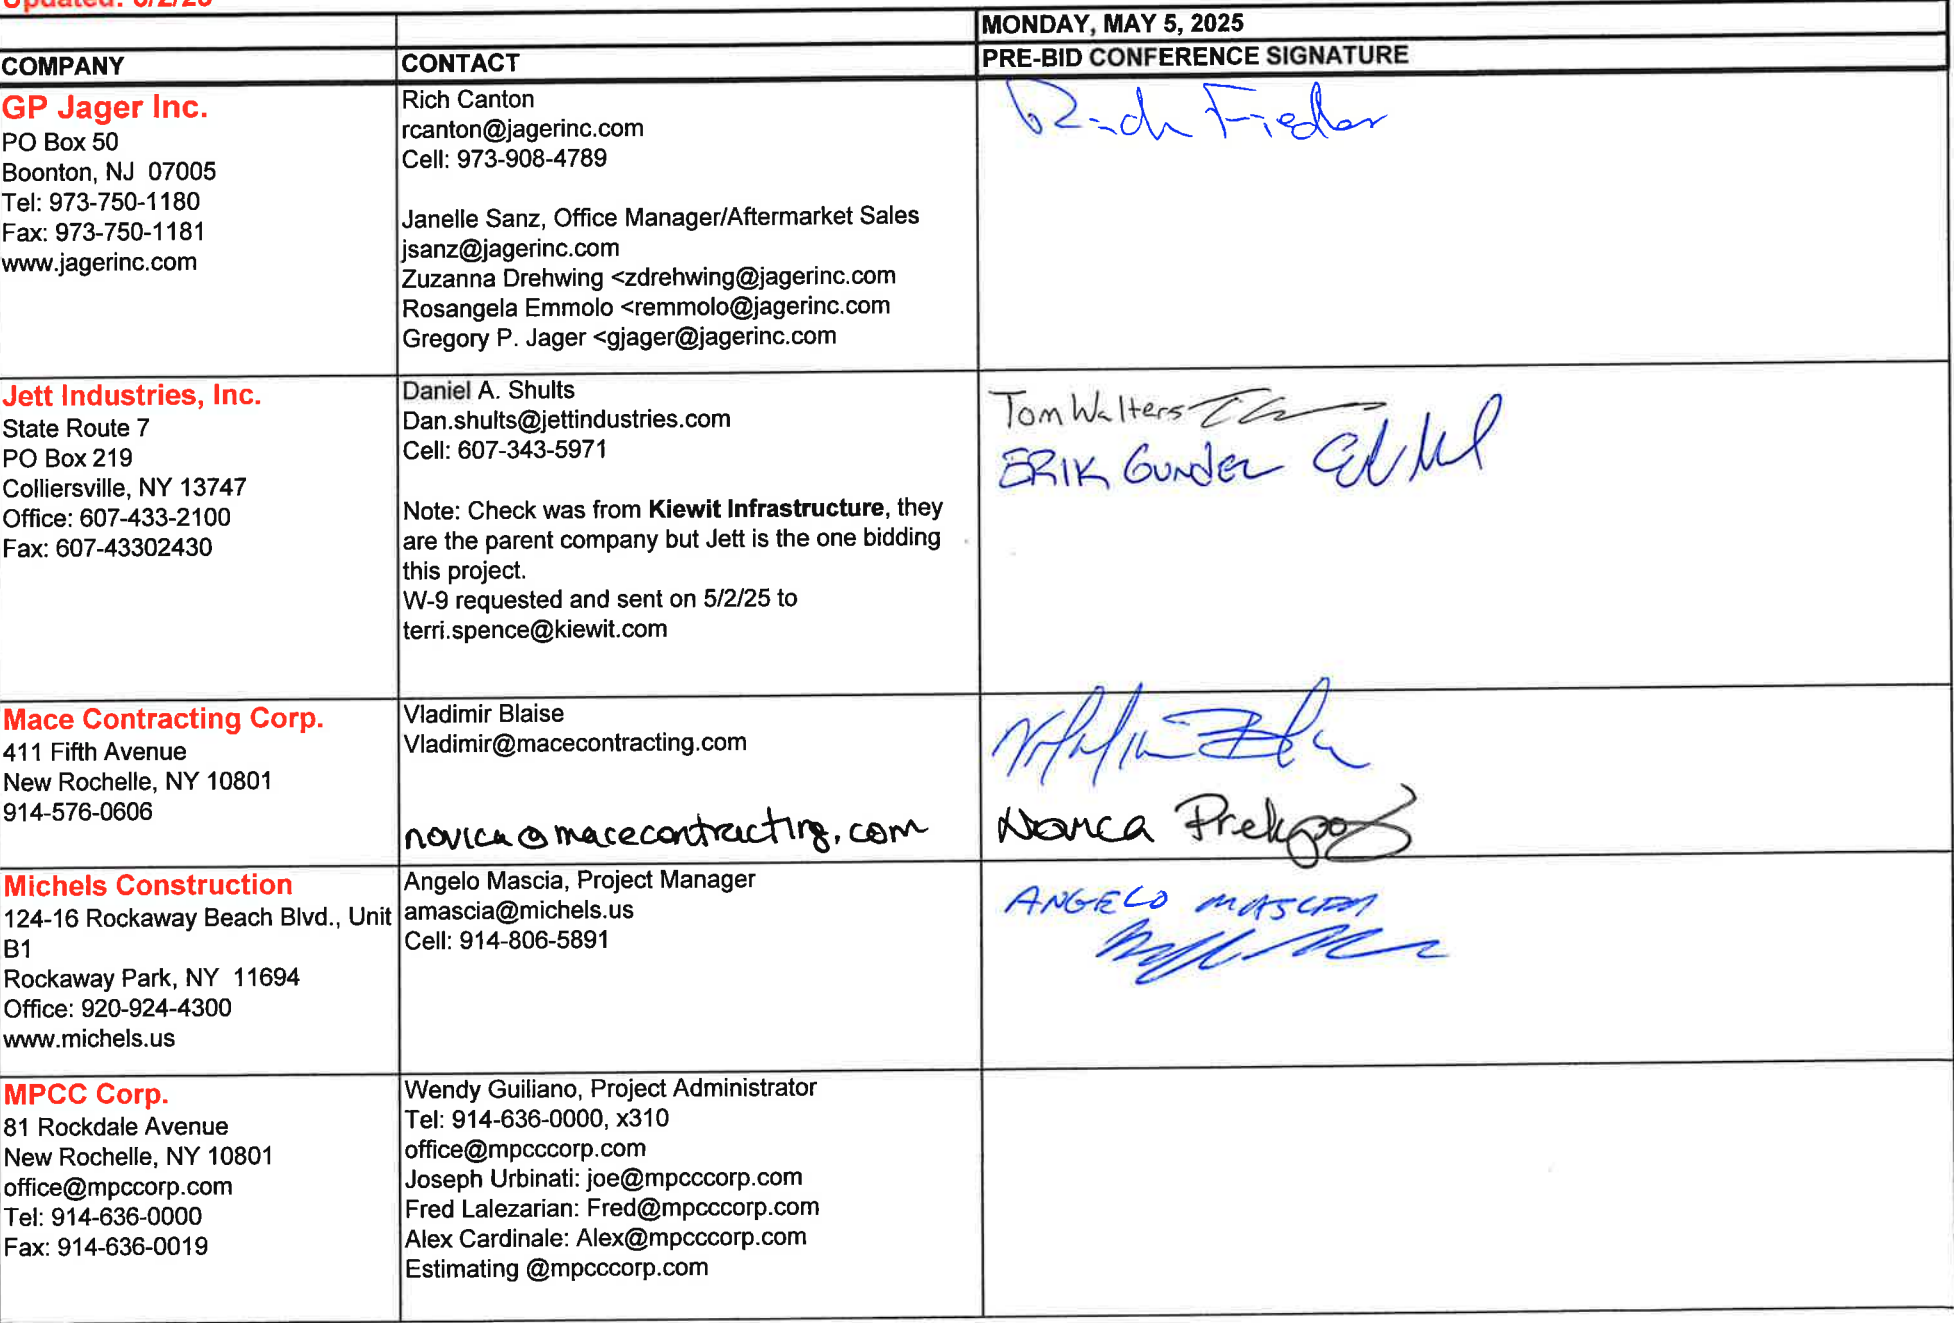 Updated: 5/2/25
MONDAY, MAY 5, 2025
COMPANY
CONTACT
PRE-BID CONFERENCE SIGNATURE
GP Jager Inc.
PO Box 50
Boonton, NJ 07005
Tel: 973-750-1180
Fax: 973-750-1181
www.jagerinc.com
Rich Canton
rcanton@jagerinc.com
Cell: 973-908-4789
Janelle Sanz, Office Manager/Aftermarket Sales
jsanz@jagerinc.com
Zuzanna Drehwing <zdrehwing@jagerinc.com
Rosangela Emmolo <remmolo@jagerinc.com
Gregory P. Jager <gjager@jagerinc.com
Rich Fiedler
Jett Industries, Inc.
State Route 7
PO Box 219
Colliersville, NY 13747
Office: 607-433-2100
Fax: 607-43302430
Daniel A. Shults
Dan.shults@jettindustries.com
Cell: 607-343-5971
Note: Check was from Kiewit Infrastructure, they
are the parent company but Jett is the one bidding
this project.
W-9 requested and sent on 5/2/25 to
terri.spence@kiewit.com
Tom Walters
ERIK GUNDEL
Mace Contracting Corp.
411 Fifth Avenue
New Rochelle, NY 10801
914-576-0606
Vladimir Blaise
Vladimir@macecontracting.com
novica@macecontracting.com
Novica
Michels Construction
124-16 Rockaway Beach Blvd., Unit
B1
Rockaway Park, NY 11694
Office: 920-924-4300
www.michels.us
Angelo Mascia, Project Manager
amascia@michels.us
Cell: 914-806-5891
ANGELO MASCIA
MPCC Corp.
81 Rockdale Avenue
New Rochelle, NY 10801
office@mpccorp.com
Tel: 914-636-0000
Fax: 914-636-0019
Wendy Guiliano, Project Administrator
Tel: 914-636-0000, x310
office@mpcccorp.com
Joseph Urbinati: joe@mpcccorp.com
Fred Lalezarian: Fred@mpcccorp.com
Alex Cardinale: Alex@mpcccorp.com
Estimating @mpcccorp.com